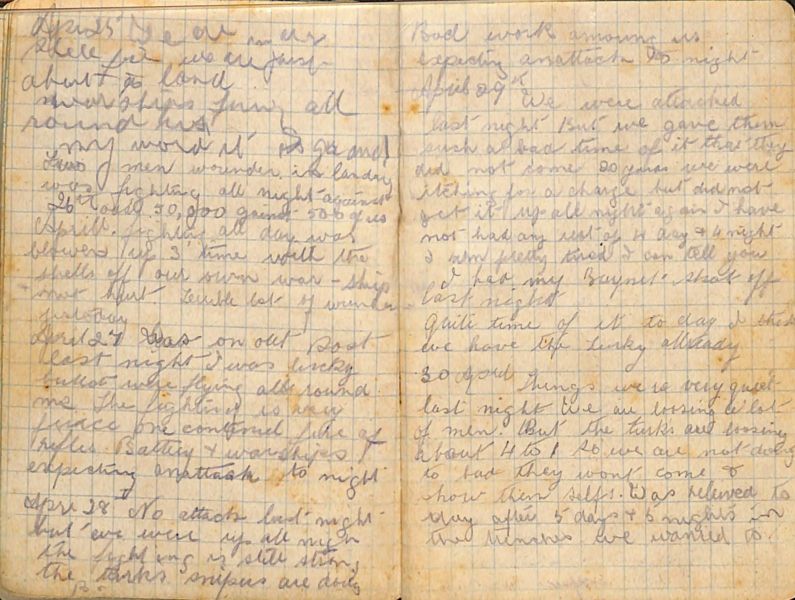 Apri 25 We are under
shell fire, we are just
about to land
warships firing all
round us
my word it is grand
Two men wounded in landing
was fighting all night against
26th odds. 30,000 against 500 of us
Aprill. fighting all day was
blowen up 3 time with the
shells off our own war-ships
not hurt. Terible lot of wounded
yesterday
April 27 Was on out Post
last night I was lucky
bullet were flying all round
me The fighting is very
fierce one continual fire of
rifles Battery & warships I
expecting an attack to night
Apri 28 No attack last night
but we were up all nigh
the fighting is still strong
the turks snipers are doing
Bad work amoung us
expecting an attack to night
April 29th
We were attacked
last night But we gave them
such a bad time of it that they
did not come 20 yards we were
itching for a charge but did not
get it up all night again I have
not had any rest of 4 day & 4 night
I am pretty tired I can tell you
I had my Baynet shot off
last night
Quite time of it to day I think
we have the turky allready
30 April
Things were very quiet
last night We are loosing a lot
of men. But the turks are loosing
about 4 to 1 So we are not doing
to bad they wont come &
show them selfs. Was releived to
day after 5 days & 5 nights in
the trenches we wanted to.